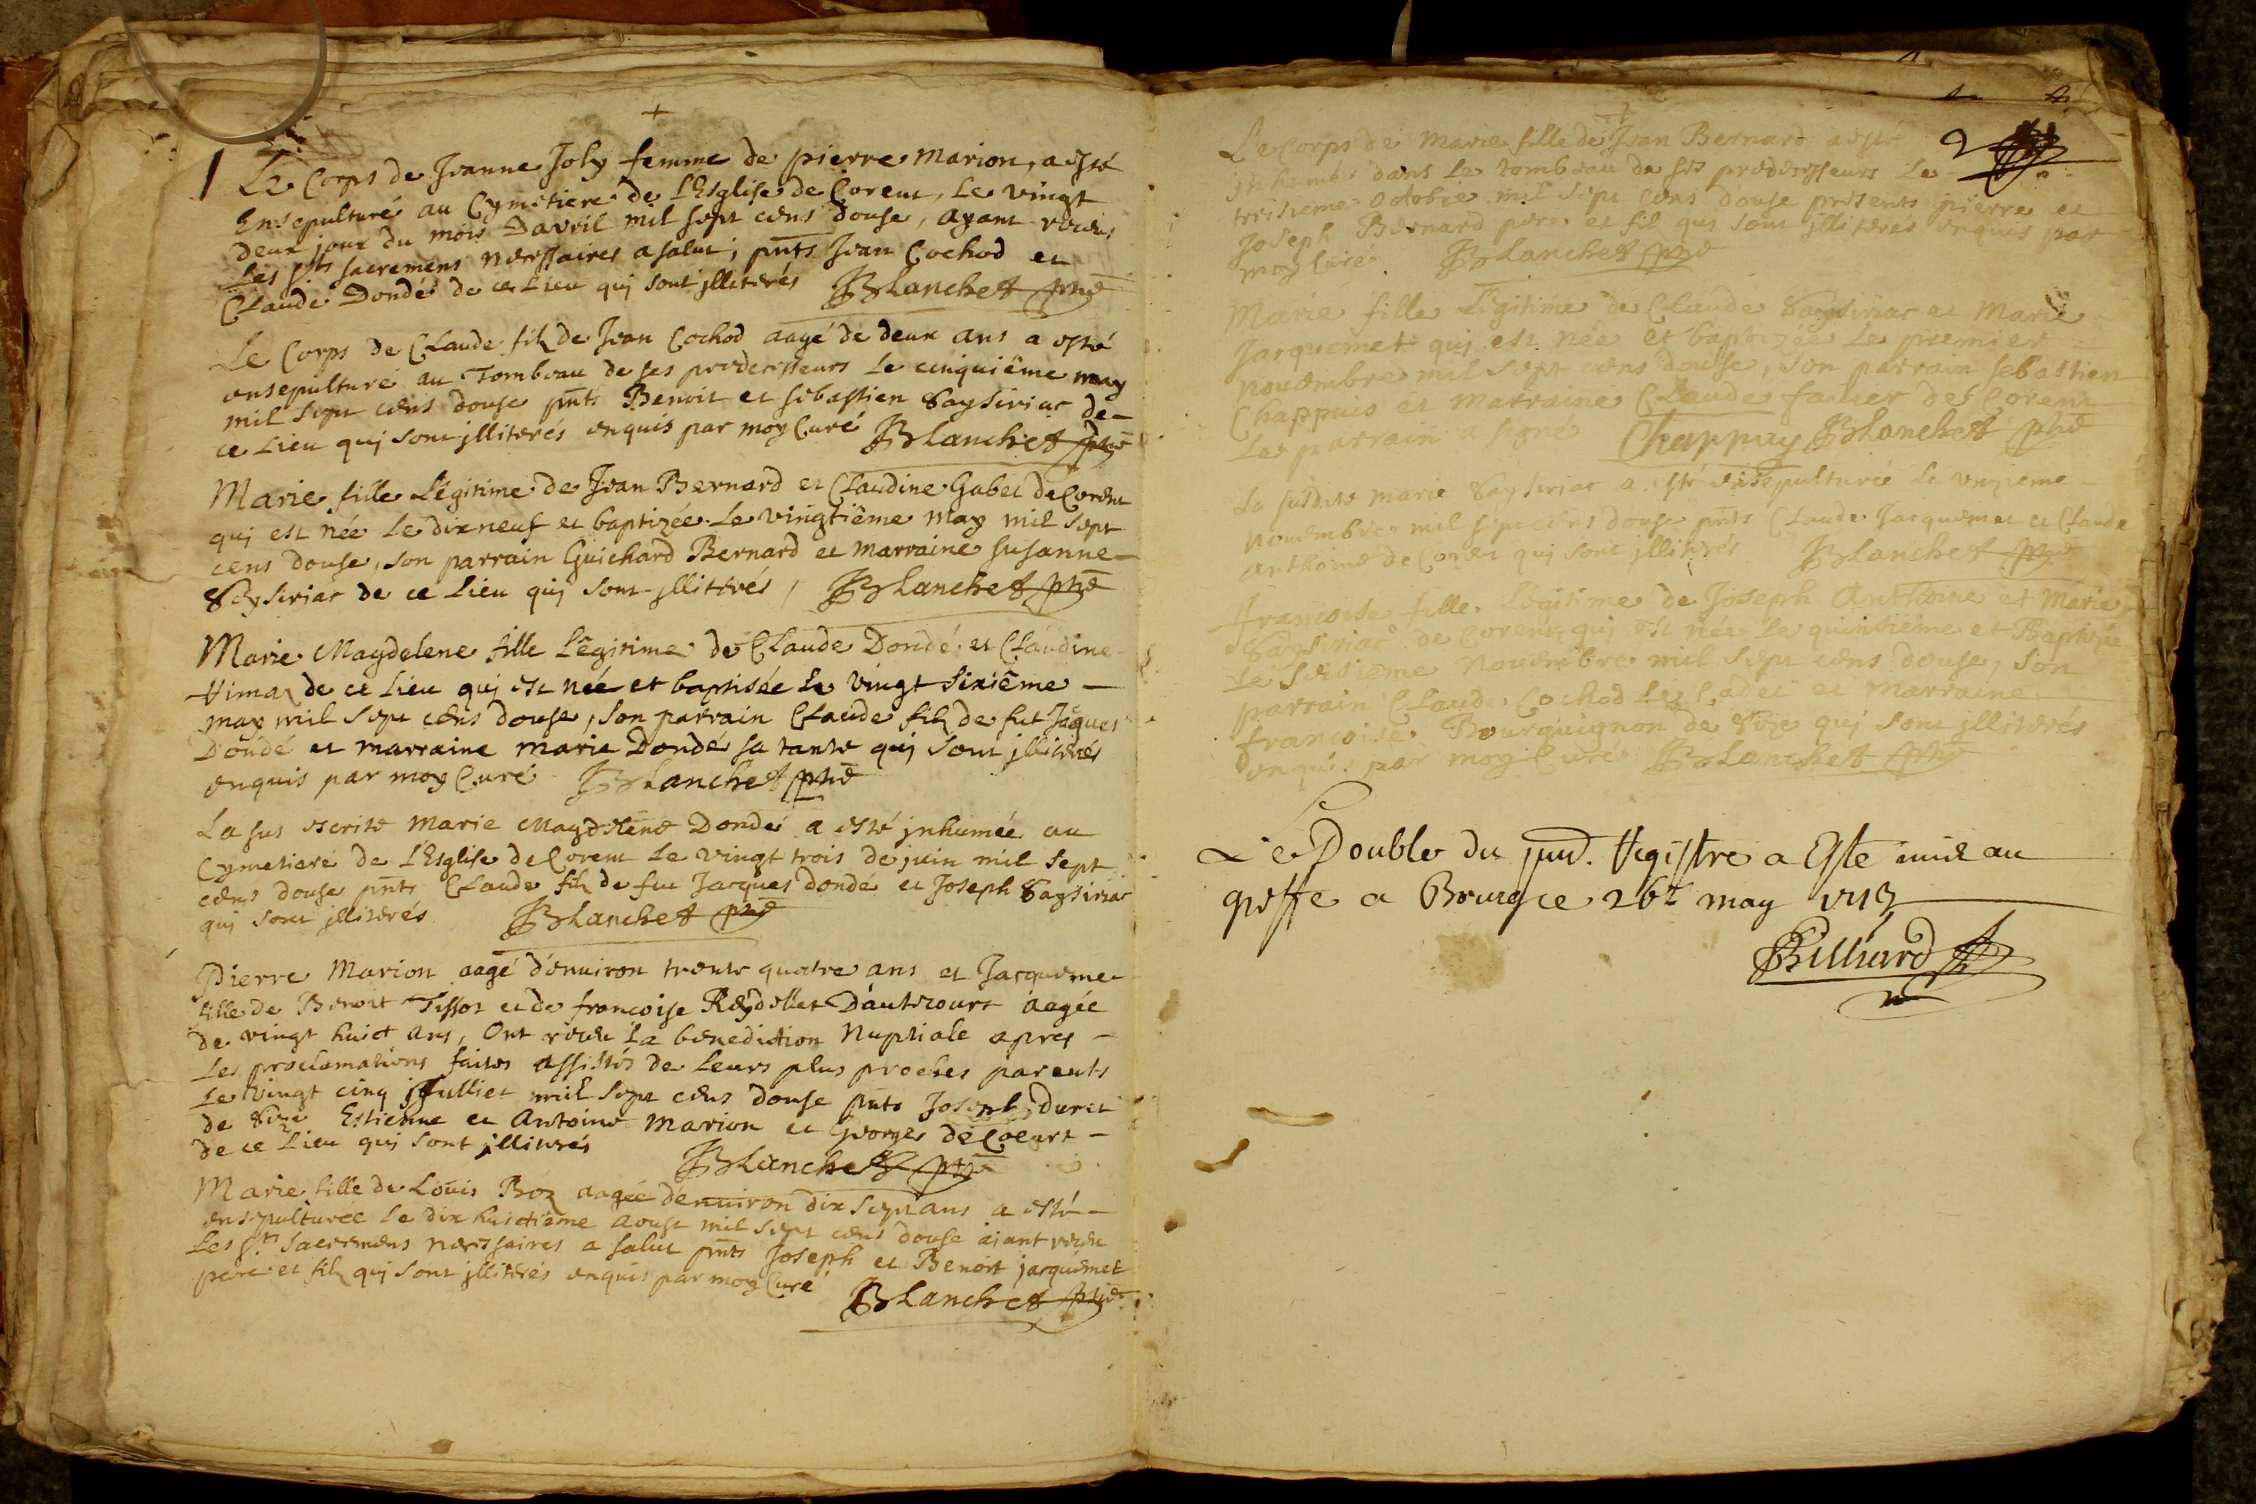 +
1 Le Corps de Jeanne Joly femme de pierre Marion, a esté
Ensepulturé au Cymetiere de L'Esglise de Corent, Le vingt
deux jour du mois Davril mil sept cens douse, ayant receus
Les sts sacremens necessaires a salut; pnts Jean Cochod et
Claude Dondé de ce Lieu qui sont jlliterés JBlanchet ptre
Le Corps de Claude fils de Jean Cochod aagé de deux ans a esté
ensepulturé au Tombeau de ses predecesseurs Le cinquiême may
mil sept cens douse pnts Benoit et sebastien Saysiriac de
ce Lieu qui sont jlliterés enquis par moy Curé JBlanchet ptre
Marie fille Légitime de Jean Bernard et Claudine Gabet de Corent
qui est née Le dixneuf et baptizée Le vingtiême may mil sept
cens douse, son parrain Guichard Bernard et marraine susanne
Seysiriac de ce Lieu qui sont jlliterés, JBlanchet ptre
Marie Magdelene fille Légitime de Claude Dondé et Claudine
de ce Lieu qui est née et baptisée Le vingt sixiême
may mil sept cens douse, son parrain Claude fils de fut Jaques
Dondé et marraine marie Dondé sa tante qui sont jlliterés
enquis par moy Curé JBlanchet ptre
La sus escrite Marie Magdelene Dondé a esté jnhumée au
Cymetiere de L'Esglise de Corent Le vingt trois de juin mil sept
cens douse pnts Claude fils de fut Jacques dondé et Joseph Saysiriac
qui sont jlliterés JBlanchet ptre
Pierre Marion aagé d'environ trente quatre ans et Jacqueme
fille de Benoit Tissot et de francoise Reydellet Dautecourt aagée
de vingt huict ans, Ont receu La benediction Nuptiale apres
Les proclamations faites assistés de Leurs plus proches parents
Le vingt cinq julliet mil sept cens douse pnts Joseph duret
de Estienne et Antoine Marion et Georges deCoeurt
de ce Lieu qui sont jlliterés JBlanchet ptre
Marie fille de Loüis Boz aagée d'environ dix sept ans a esté
ensepulturee Le dix huictiême aoust mil sept cens douse aiant receu
Les sts sacremens necessaires a salut pnts Joseph et Benoit jacquemet
pere et fils qui sont jlliterés enquis par moy Curé
JBlanchet ptre
Le Corps de Marie fille de Jean Bernard a esté 2
jnhumé dans Le tombeau de ses predecesseurs Le
treisieme Octobre mil sept cens douse presents pierre et
Joseph Bernard pere et fils qui sont jlliterés enquis par
moy Curé. JBlanchet ptre
Marie fille Légitime de Claude Saysiriac et Marie
Jacquemet qui est née et baptisée Le premier
novembre mil sept cens douse, son parrain sebastien
Chappuis et marraine Claude de Corent
Le parrain Chappuy JBlanchet ptre
La susdite marie Saysiriac a esté ensepulturée Le unzieme
novembre mil sept cens douse pnts Claude Jacquemet et Claude
anthoine de Corent qui sont jlliterés JBlanchet ptre
francoise fille Légitime de Joseph Anthoine et Marie
Saysiriac de Corent qui est née Le quinsiême et Baptisée
Le seisieme Novembre mil sept cens douse, son
parrain Claude Cochod Le Cadet et marraine
francoise Bourguignon de qui sont jlliterés
enquis par moy Curé JBlanchet ptre
Le Double du pnt. Registre a Esté mis au
greffe a Bourg ce 26e may 1713
Billiard